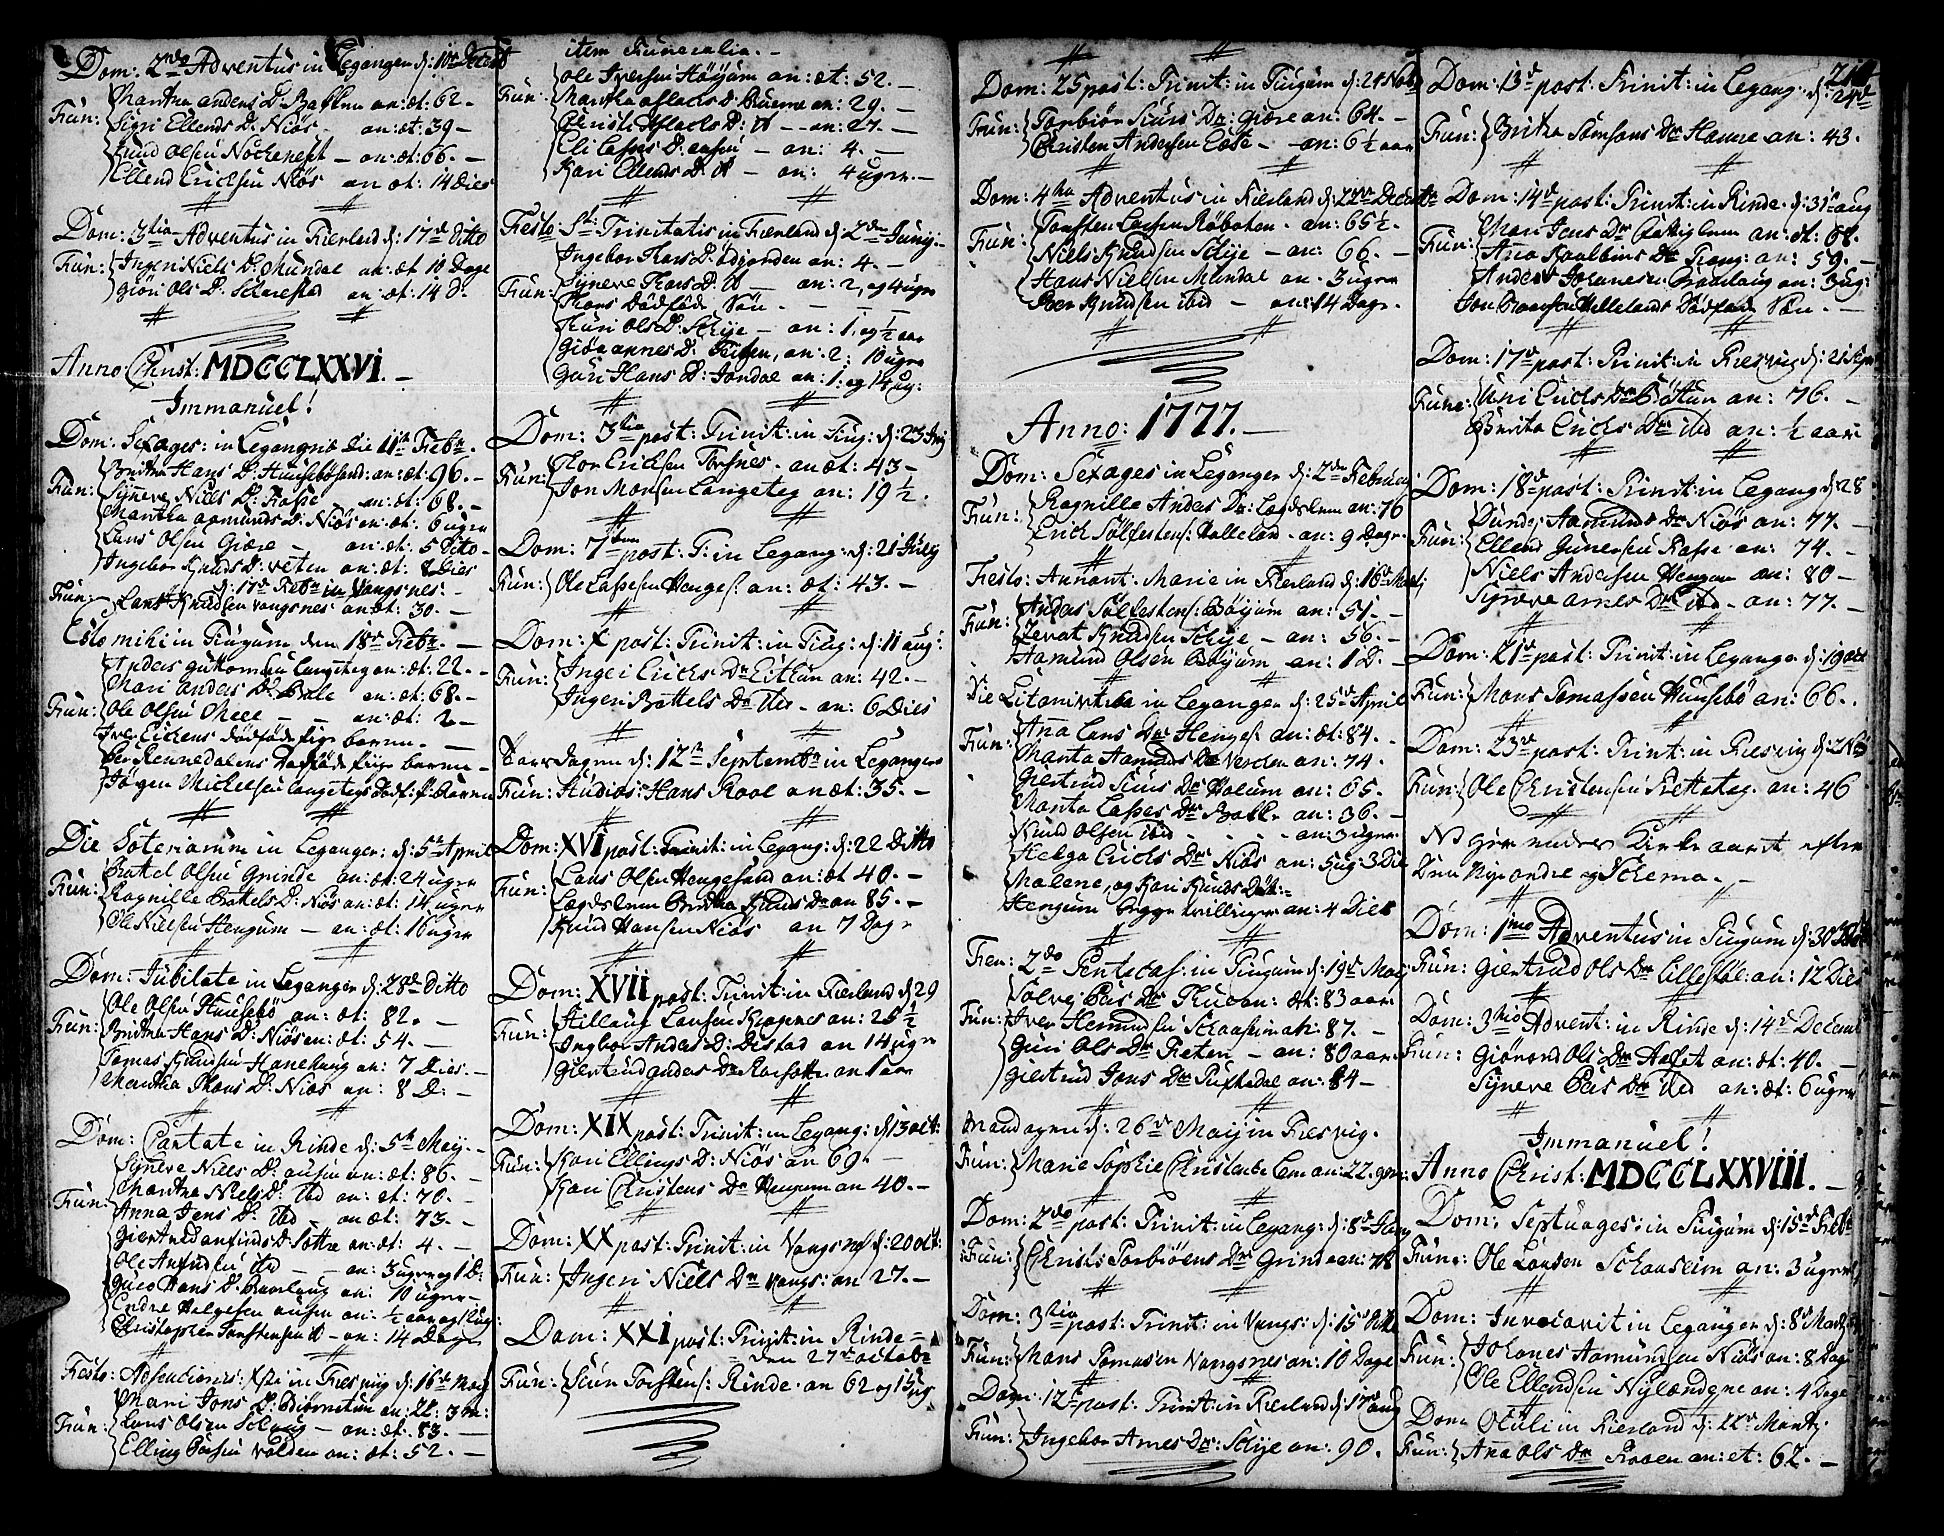 Dom: 2nda Adventus in Leganger d: 10de Decbr
Fun: Martha anders D. Bakken an: æt: 62. -
Sigri Ellends D: Niös - an: æt: 39 -
Knud olsen Nockenest - an: æt: 66. -
Ellend Ericksen Niös an æt: 14 Dies
Dom: 3tia Adventus in Fierland d: 17de Ditto
Fun: Ingeri Niels D: Mundal an: æt 10 Dage
Giöri Ols D. Scharestad an: æt: 14 D.
Anno Christ: MDCCLXXVI. -
Immanuel!
Dom: Sexages: in Leganger die 11te Febr.
Fun: Britha Hans D: Huusebösand: an: æt: 96. -
Synneve Niels D: Fosse an: æt: 68. -
Martha aamunds D: Niös an: æt: 6 ugr
Lars Olsen Giære - an: æt: 5 Ditto -
Ingebor Knuds D: veten an: æt: 8 Dies
d: 17de Febr in Vangsnes:
Fun: Lars Knudsen Vangsnes an: æt: 30. -
Esto mihi in Tiugum den 18de Febr. -
Fun: Anders guttormsen langeteg an: æt: 22. -
Mari anders D. Bale an: æt: 68. -
Ole Olsen Mele - - an: æt: 2 -
Iver Eichens dödföde Pige barn. -
Per Rennedalens Dödföde Pige barn -
Jörgen Michelsen langetegs Dödf: P: Barn
Die Soteriarum in Leganger: d: 5te April
Fun: Battel Olsen Grinde an: æt: 24 ugr
Ragnille Battels D: Niös an: æt: 14 ugr
Ole Nielsen Hengum - an: æt: 16 ugr
Dom: Jubilate in Leganger d: 28de Ditto
Fun: Ole Olsen Huusebö an: æt: 82. -
Britha Hans D: Niös an: æt: 54. -
Tomas Knudsen Hanehaug an: 7 Dies. -
Martha Hans D: Niös an: 8 D: -
Dom: Cantate in Rinde d: 5te Maij. -
Fun: Synneve Niels D: ausen an: æt: 86. -
Martha Niels D: ibd an: æt: 70. -
Anna Jens D: ibd an æt: 73. -
Giertrud anfinds D: Sottre an: æt: 4. -
Ole Anfindsen ibd - - an: 3 ugr og 1 D:
Guro Hans D: Bramlaug an: 10 ugr -
Endre Helgesen ausen an: ½ aar og 1 ug:
Christopher Torstensen ibd - an: 14 Dage
Festo: Adsentionis: Xsti in Fresvig d: 16de Maij
Fun: Mari Jons D: Biörnetun an: 22: 3 m:
Lars Olsen Schaug - an: æt: 83. -
Elling Persen Volden an: æt: 52. -
item Funeralia. -
Fun: Ole Iversen Höyum an: æt: 52. -
Martha aslacs D: Qværne an: 29. -
Christi Aslacs D: ibd - - an: 27. -
Eli Lasses D: ausen - an: 4. -
Kari Ellends D. ibd - an: 4 ugr. -
Festo St: Trinitatis in Fierland d: 2den Junij: -
Fun: Ingebor Hans D: ödjorden an: 4. -
Synneve Hans D: ibd - an: 2, og 4 ugr
Hans Dödföde Sön - - -
Kari Ols D: Schye - an: 1, og ½ aar
Giöa annes D: Teigen, an: 2: 10 ugr
Guri Hans D: Jordal an: 1: og 14 ug:
Dom: 3tia post: Trinit: in Tiug: d: 23 Junij
Fun: Thor Ericksen Torsnes - an æt: 43 -
Jon Monsen Langeteg an: 19½. -
Dom: 7tima post: T: in Legang: d: 21 Julij
Fun: Ole Lassesen Henges: an: æt: 43. -
Dom: X post: Trinit: in Tiug: d: 11 aug:
Fun: Ingeri Erichs Dr Eithun an: 42. -
Ingeri Battels Dr ibd - an: 6 Dies
Taxerdagen d: 12te Septembr in Leganger
Fun: Studios: Hans Roal an æt: 35. -
Dom: XVI post: Trinit: in Legang: d: 22 Ditto
Fun: Lars Olsen Hengesand an: æt 40. -
Lægdslem Britha Knuds Dr an: 85. -
Knud Hansen Niös an 7 Dage
Dom: XVII post: Trinit: in Fierland d: 29
Fun: Hillaug Larsen Kragnes an: 25½
Ingbor Anders D: Distad an 14 ugr
Giertrud anders Dr Rorsatte an 1 aar
Dom: XIX post: Trinit: in Legang: d: 13 oct:
Fun: Kari Ellings D: Niös an 69. -
Kari Christens Dr Hengum an 40. -
Dom: XX post: Trinit: in Vangsnes d: 20 oct:
Fun: Ingeri Niels Dr Vangs: an 27. -
Dom: XXI post: Trinit: in Rinde =
den 27de octobr
Fun: Siur Torstens: Rinde - an 62 og 15 ug
Dom: 25 post: Trinit: in Tiugum d: 24 Nobr
Fun: Torbiör Siurs Dr: Giære an: 64. -
Christen Andersen Eese - an: 6½ aar
Dom: 4ta Adventus in Fierland d: 22de Decembr
Fun: Torsten Larsen Röboten - an: 65½. -
Niels Knudsen Schye - an: 66. -
Hans Nielsen Mundal an - 3 ugr
Iver Knudsen ibid - an: 14 Dage.
Anno: 1777. -
Dom: Sexages in Leganger d: 2den Februar
Fun: Ragnille Anders Dr: Lægdslem an: 76
Erich Sölfestens: Halleland - an: 9 Dage. -
Festo: Annunt: Mariæ in Fierland d: 16de Martij
Fun: Anders Sölfestens: Böyum an: 51. -
Zerat Knudsen Schye - an: 56. -
Aamund Olsen Böyum an: 1 D. -
Die Litaniarum in Leganger d: 25de April
Fun: Ana Lars Dr Henges: an: æt: 84. -
Marta Aamunds Dr Verden an: 74. -
Giertrud Siurs Dr Holum an: 65. -
Marta Lasses Dr Bakk - an: 36. -
Knud Olsen ibid - - - an: 3 ugr
Helga Erichs Dr Niös an: 5 ug: 3 Die
Malene, og Kari Knuds Döt: -
Hengum begge tvillinger an: 4 Dies
Feri: 2da Pentecos: in Tiugum d: 19de Maij
Fun: Solvej Peis Dr Thue an: æt: 83 aar
Iver Hermundsen Schaasheim æt: 87. -
Guri Ols Dr Feten - an: 80 aar
Giertrud Jons Dr Tuftedal an: 84 -
Mandagen d: 26de Maij in Fresvig.
Fun: Marie Sophie Christenbe Lem an: 22. -
Dom: 2da post: Trinit: in Legang: d: 8de Junij
Fun: Christi Torbiörns Dr Grinde an: 78
Dom: 3tia post: Trinit: in Vangs: d: 15de Ditto
Fun: Mons Tomasen Vangsnes an: 10 Dage
Dom: 12te post: Trinit: in Fierland d: 17de aug
Fun: Ingebor Arnes Dr: Schye an: 90.
211
Dom: 13de post: Trinit: in Legang: d: 24de
Fun: Britha Samsons Dr Hamre an: 43.
Dom: 14de post: Trinit: in Rinde d: 31te aug
Fun: Mari Jens Dr Fattiglem an: æt: 68. -
Ana Kaalbiörns Dr Haug: an: 59. -
Anders Johanesen Bramlaug an: 3 ug:
Jon Hallelands Dödföde Sön. -
Dom: 17de post: Trinit: in Fresvig d: 21 Sept
Fune: Guri Erichs Dr Bötun an: 76. -
Bürita Erichs Dr ibid an: ½ aar
Dom: 18de post: Trinit: in Legang d: 28
Fun: Dunder Aamunds Dr Niös an: 77. -
Ellend Gunersen Fosse an: 74. -
Niels Andersen Hengum an: 80 -
Synneve arnes Dr ibd - an: 77. -
Dom: 21de post: Trinit: in Leganger d: 19 oct
Fun: Mons Tomassen Huusebö an: 66. .
Dom: 23de post: Trinit: in Fresvig d: 2 Nob
Fun: Ole Christensen Slettetag. an: 46
NB her endes Kirke aaret efter
Den Nye ordre og Schema. -
Dom: 1ma Adventus in Tiugum d: 30 Nob
Fun: Giertrud Ols Dr Lillesöe: an: 12 Dies
Dom: 3tia Advent: in Rinde d: 14de Decemb
Fun: Giörond Ols Dr Aafet an: æt: 40. -
Synneve Peis Dr ibd an: æt: 6 ugr
Immanuel!
Anno Christ: MDCCLXXVIII. -
Dom: Septuages: in Tiugum d: 15de Febr
Fun: Ole Larsen Schaasheim an: 3 ugr
Dom: Invocavit in Leganger d: 8de Martij
Fun: Johanes Aamundsen Niös an: 8 Dage
Ole Ellendsen Nylændgne an: 4 Dage
Dom: Oculi in Fierland d: 22de Martij.
Fun: Ana Ols Dr Haaen an: et: 62. -